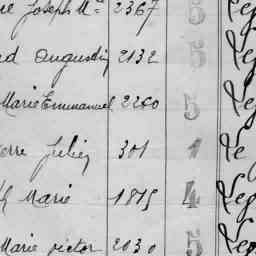 Joseph Mie 2367 5 Leg
Augustin 2132 5 Leg
Marie Emmanuel 2260 5 Leg
Julien 301 1 Le
Marie 1875 4 Leg
Marie victor 2030 5 Leg